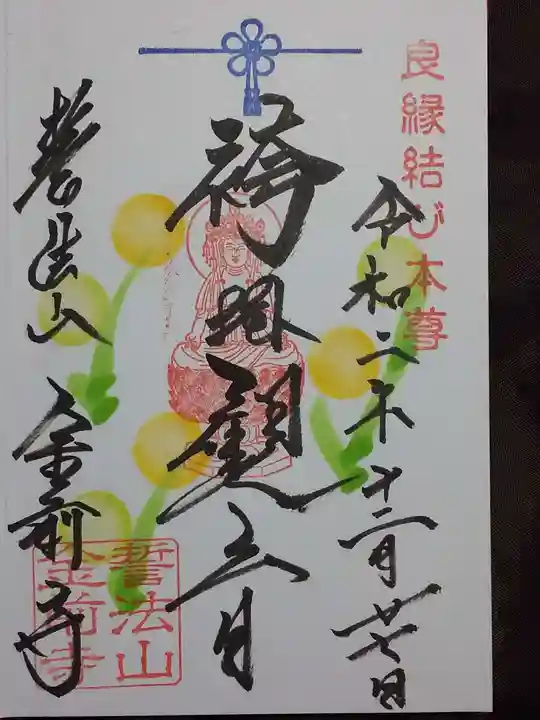 良縁結び本尊
令和二年十二月廿七日
袴掛観音
誓法山
金前寺
誓法山
金前寺